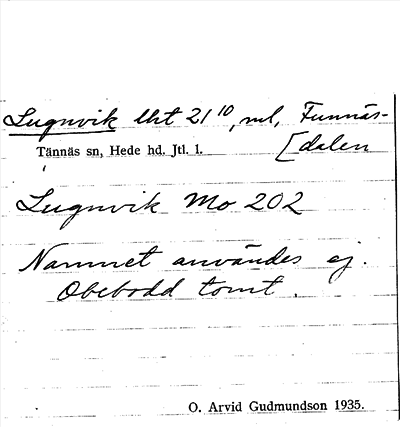 Lugnvik lht 21¹⁰, ml, Funnäs-
[dalen
Tännäs sn, Hede hd. Jtl. l.
Lugnvik Mo 202
Namnet användes ej.
Obebodd tomt.
O. Arvid Gudmundson 1935.